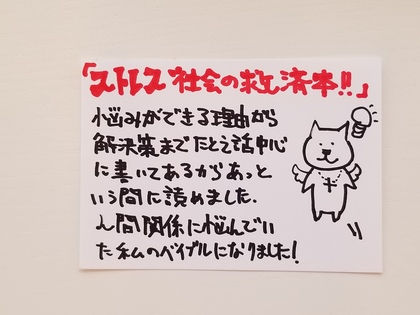 「ストレス社会の救済本!!」
悩みができる理由から
解決策までたとえ話中心
に書いてあるからあっと
いう間に読めました.
人間関係に悩んでい
た私のバイブルになりました!